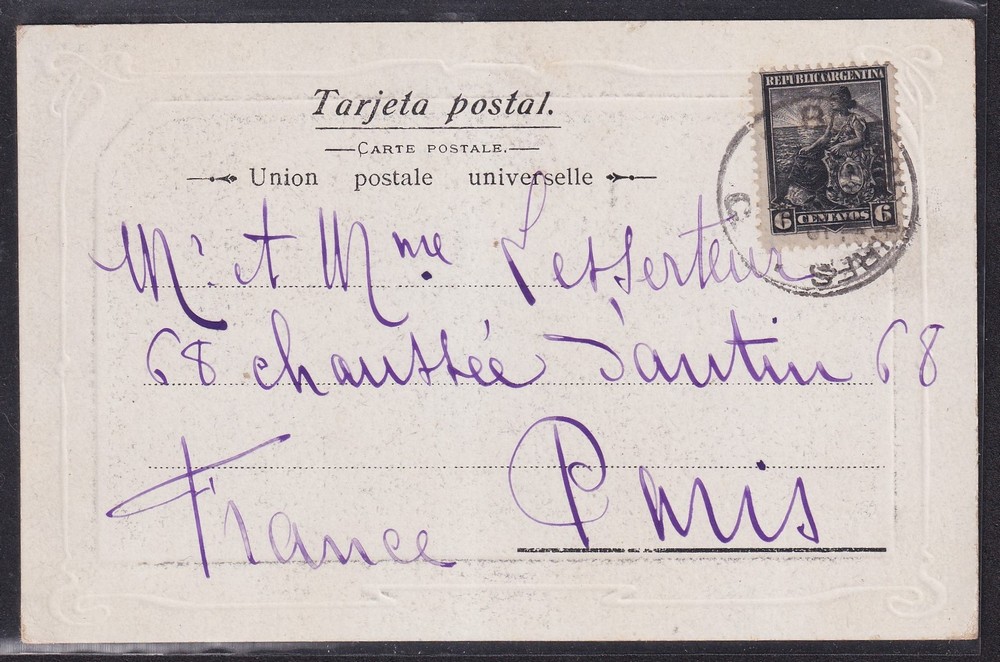 Tarjeta postal.
CARTE POSTALE.
Union postale universelle
REPUBLICA ARGENTINA
6 CENTAVOS 6
Mr et Mme Lesserteur
68 chaussée d'antin 68
France Paris